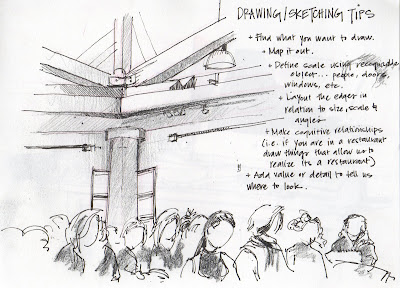 DRAWING/SKETCHING TIPS
+ Find what you want to draw.
+ Map it out.
+ Define scale using recognizable
object... people, doors,
windows, etc.
+ Layout the edges in
relation to size, scale &
angles
+ Make cognitive relationships
(i.e. if you are in a restaurant
draw things that allow us to
realize its a restaurant)
+ Add value or detail to tell us
where to look.